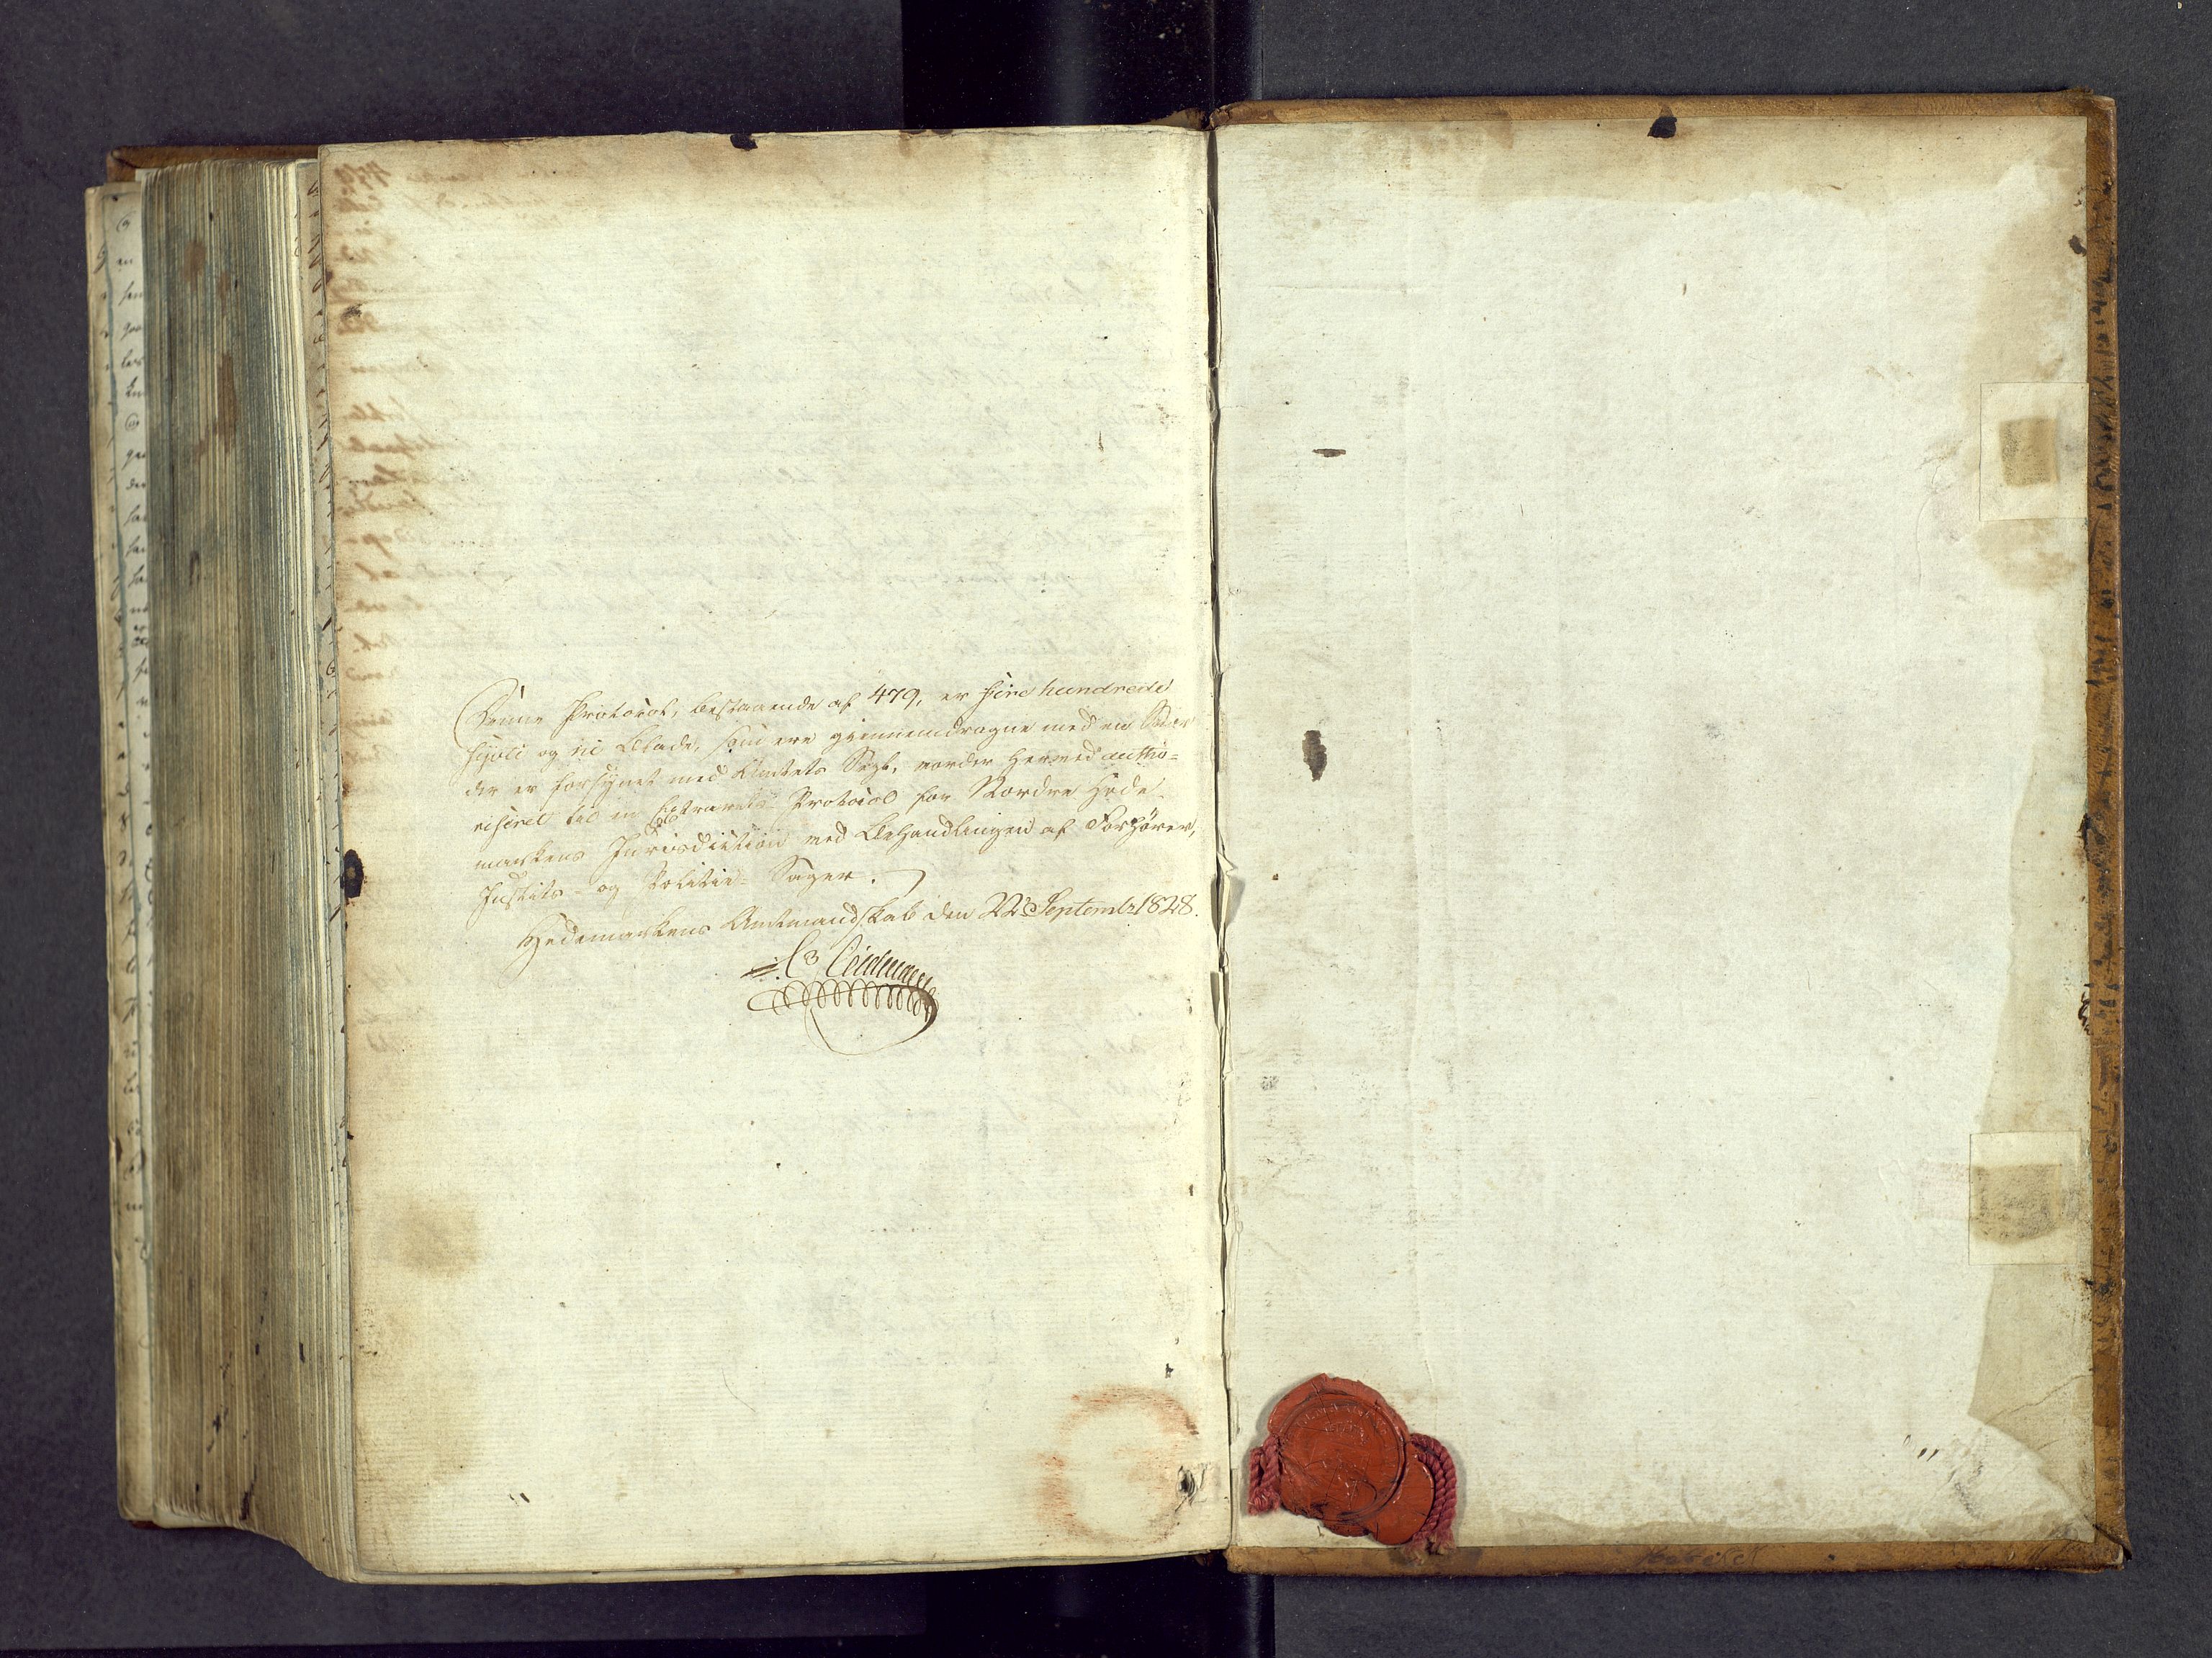 Denne Protocol, bestaaende af 479, er fire hundrede
siyvti og ni Blade, som ere giennemdragne med en Snor
der er forsynet med Amtets Segl, vorder herved autho-
riseret til en Extrarets-Protocol for Nordre Hede-
markens Jurisdiction ved Behandlingen af Forhører,
Justits- og Politie-Sager.
Hedemarkens Amtmandskab den 22de Septembr 1828.